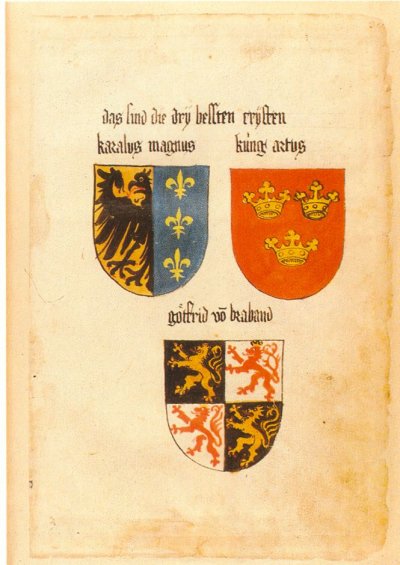 das sind die dry bessten crysten
karalus magnus
küng artus
gótfrid vō braband